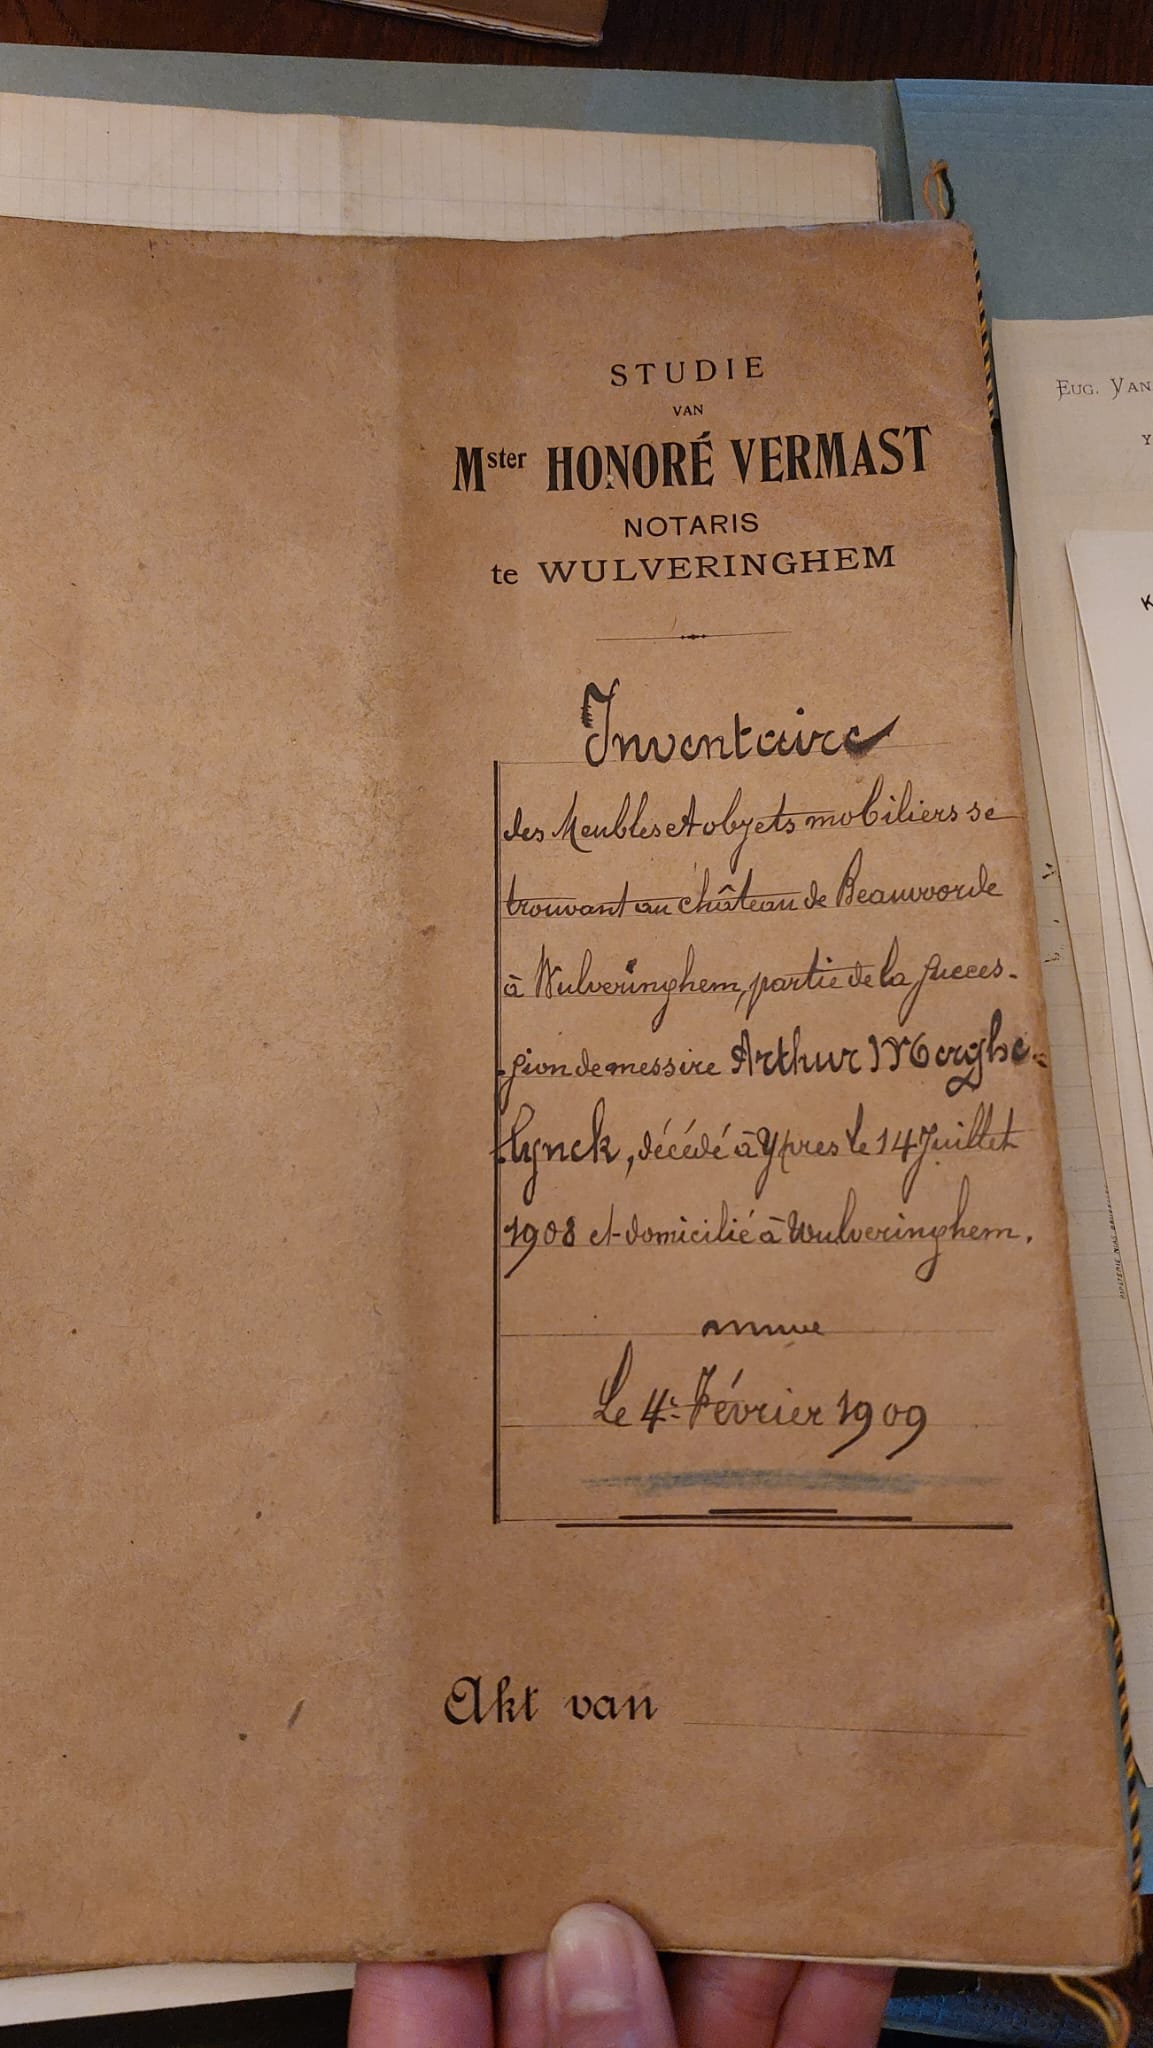 STUDIE
VAN
Mster HONORÉ VERMAST
NOTARIS
te WULVERINGHEM
Inventaire
des Meubles et objets mobiliers se
trouvant au château de Beauvoorde
à Wulveringhem, partie de la succes-
sion de messire Arthur Merghe-
lynck, décédé à Ypres le 14 Juillet
1908 et domicilié à Wulveringhem.
Le 4e Février 1909
Akt van
EUG. VAN
Y
K